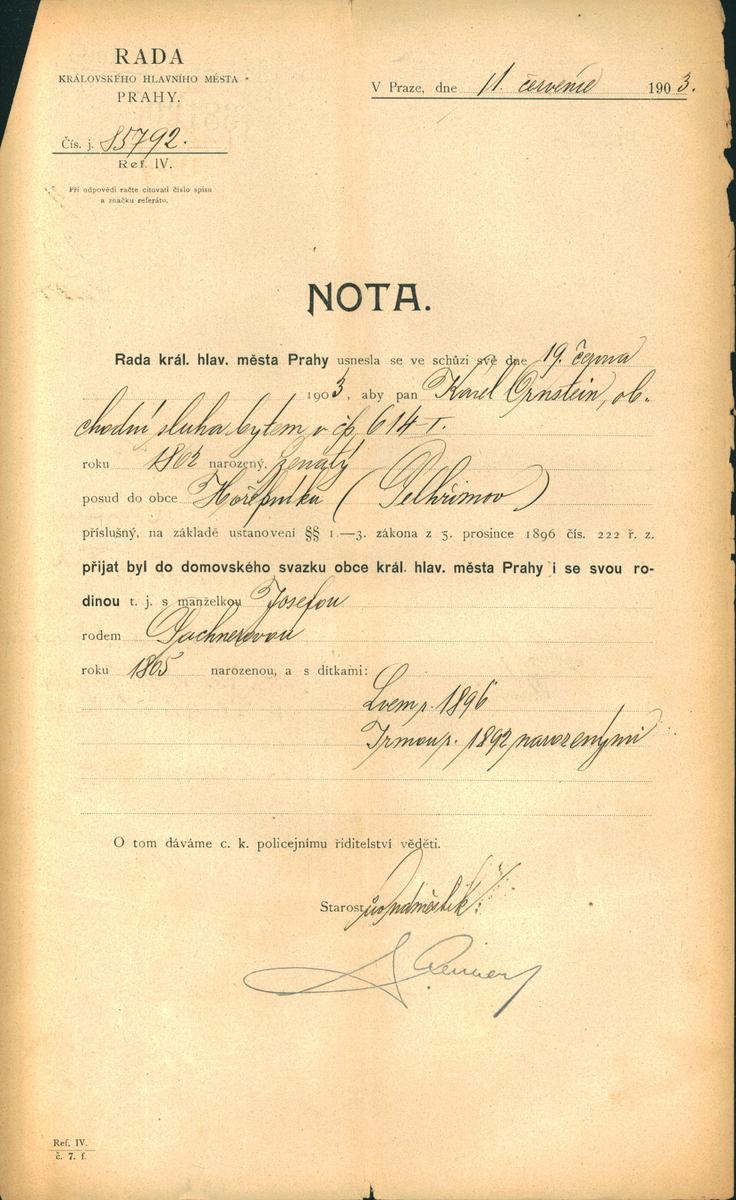 RADA
KRÁLOVSKÉHO HLAVNÍHO MĚSTA
PRAHY.
V Praze, dne 11. července 1903.
Čís. j. 85792.
Ref. IV.
Při odpovědi račte citovati číslo spisu
a značku referátu.
NOTA.
Rada král. hlav. města Prahy usnesla se ve schůzi své dne 19. června
1903, aby pan Karel Ornstein, ob-
chodní sluha bytem v čp 614 I.
roku 1862 narozený, ženatý
posud do obce Hořepníku (Pelhřimov)
příslušný, na základě ustanovení §§ 1.—3. zákona z 5. prosince 1896 čís. 222 ř. z.
přijat byl do domovského svazku obce král. hlav. města Prahy i se svou ro-
dinou t. j. s manželkou Josefou
rodem Pachnerovou
roku 1865 narozenou, a s dítkami:
Lvem r. 1896
Irmou r. 1892 narozenými
O tom dáváme c. k. policejnímu řiditelství věděti.
Starostův náměstek:
Ref. IV.
č. 7. f.